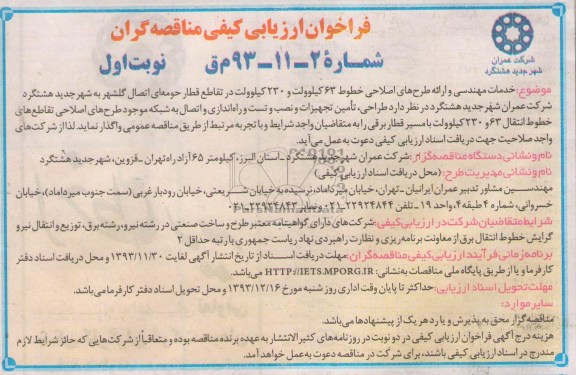 فراخوان ارزیابی کیفی مناقصه گران
شماره ۲-۱۱-۹۳ م ق نوبت اول
شرکت عمران
شهر جدید هشتگرد
موضوع: خدمات مهندسی و ارائه طرح‌های اصلاحی خطوط ۶۳ کیلوولت و ۲۳۰ کیلوولت در تقاطع قطار حومه‌ای اتصال گلشهر به شهر جدید هشتگرد
شرکت عمران شهر جدید هشتگرد در نظر دارد طراحی، تأمین تجهیزات و نصب و تست و راه‌اندازی و اتصال به شبکه موجود طرح‌های اصلاحی تقاطع‌های
خطوط انتقال ۶۳ و ۲۳۰ کیلوولت با مسیر قطار برقی را به متقاضیان واجد شرایط و با تجربه مرتبط از طریق مناقصه عمومی واگذار نماید. لذا از شرکت‌های
واجد صلاحیت جهت دریافت اسناد ارزیابی کیفی دعوت به عمل می‌آید.
نام و نشانی دستگاه مناقصه‌گزار: شرکت عمران شهر جدید هشتگرد - استان البرز، کیلومتر ۶۵ آزاد راه تهران - قزوین، شهر جدید هشتگرد
نام و نشانی مدیریت طرح: (محل دریافت اسناد ارزیابی کیفی)
مهندسین مشاور تدبیر عمران ایرانیان - تهران، خیابان میرداماد، نرسیده به خیابان شریعتی، خیابان رودبار غربی (سمت جنوب میرداماد)، خیابان
خسروانی، شماره ۴ طبقه ۴، واحد ۱۹ - تلفن ۲۲۹۲۴۸۴۴-۰۲۱ و نمابر ۲۲۹۲۴۸۴۳-۰۲۱
شرایط متقاضیان شرکت در ارزیابی کیفی: شرکت‌های دارای گواهینامه معتبر طرح و ساخت صنعتی در رشته نیرو، رشته برق، توزیع و انتقال نیرو و
گرایش خطوط انتقال برق از معاونت برنامه‌ریزی و نظارت راهبردی نهاد ریاست جمهوری با رتبه حداقل ۲
برنامه زمانی فرآیند ارزیابی کیفی مناقصه‌گران: مهلت دریافت اسناد از تاریخ انتشار آگهی لغایت ۱۳۹۳/۱۱/۳۰ و محل دریافت اسناد دفتر
کارفرما و یا از طریق پایگاه ملی مناقصات به نشانی: HTTP://IETS.MPORG.IR می‌باشد.
مهلت تحویل اسناد ارزیابی: حداکثر تا پایان وقت اداری روز شنبه مورخ ۱۳۹۳/۱۲/۱۶ و محل تحویل اسناد دفتر کارفرما می‌باشد.
سایر موارد:
مناقصه‌گزار محق به پذیرش و یا رد هر یک از پیشنهادها می‌باشد.
هزینه درج آگهی فراخوان ارزیابی کیفی در دو نوبت در روزنامه‌های کثیرالانتشار به عهده برنده مناقصه بوده و متعاقباً از شرکت‌هایی که حائز شرایط لازم
مندرج در اسناد ارزیابی کیفی باشند، برای شرکت در مناقصه دعوت به عمل خواهد آمد.